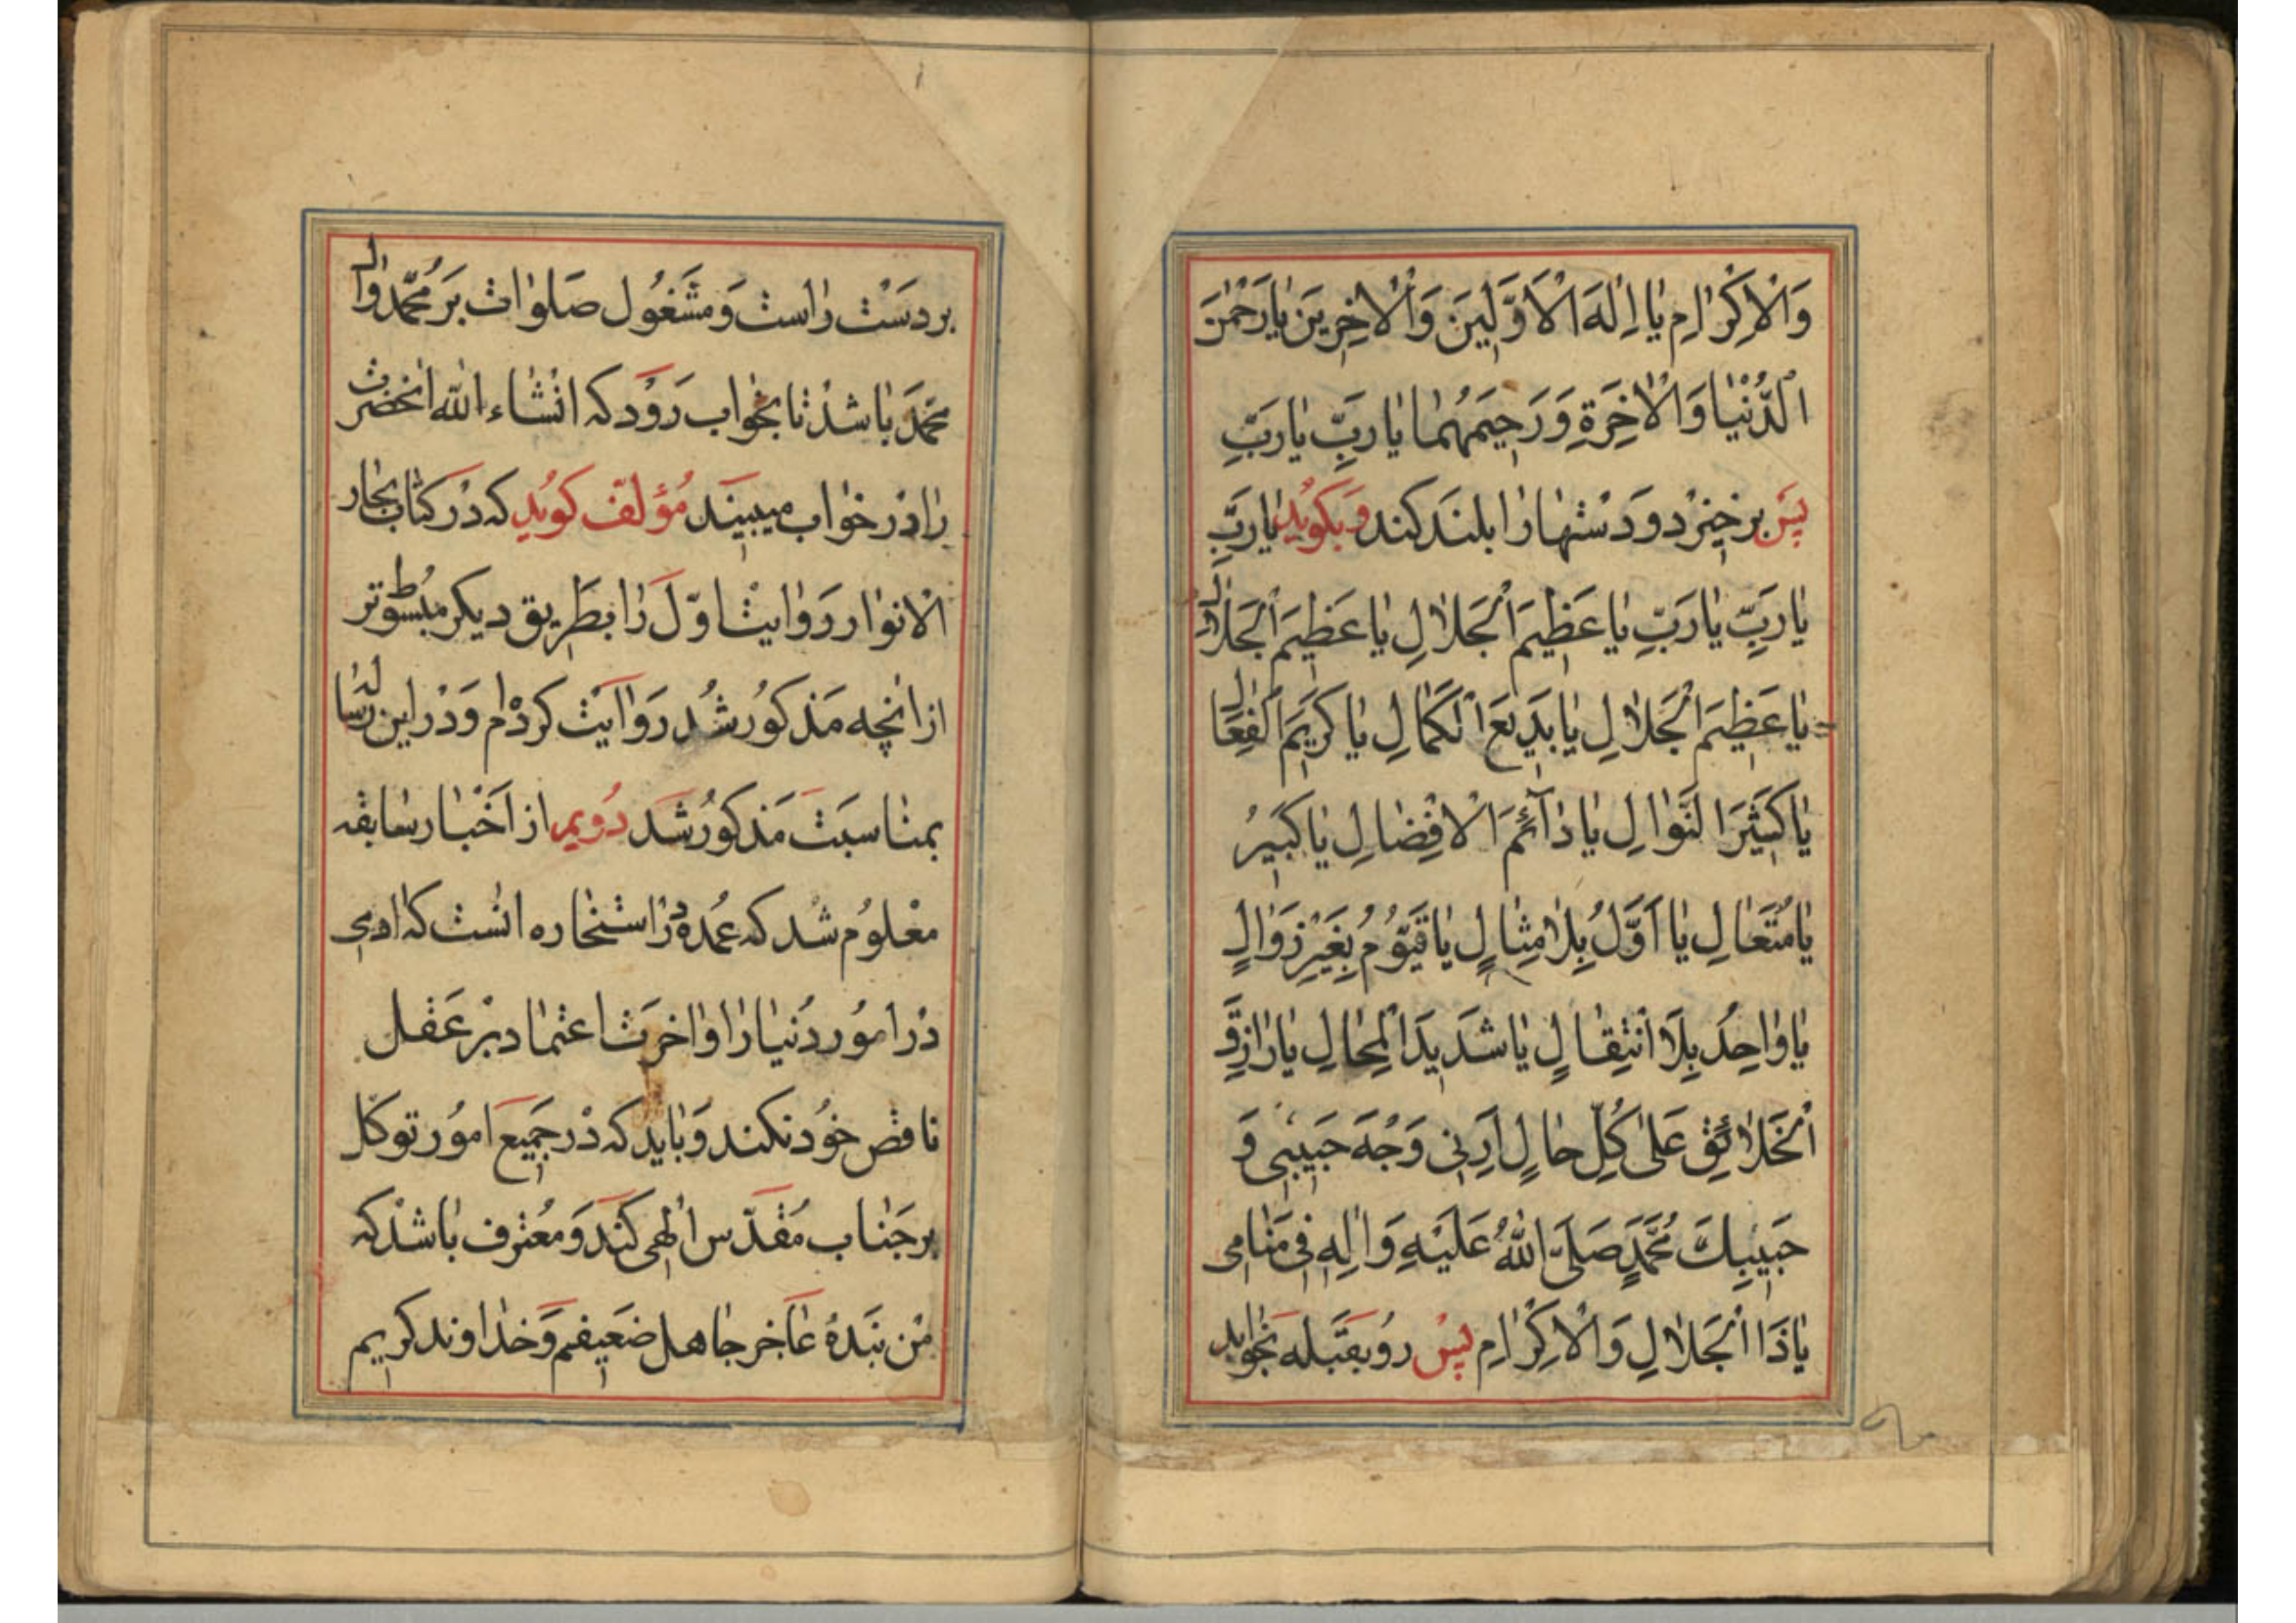 وَالْاِكْرٰامِ يٰا اِلٰهَ الْاَوَّلِينَ وَالْاٰخِرِينَ يٰارَحْمٰنَ
الدُّنْيٰا وَالْاٰخِرَةِ وَرَحِيمَهُمٰا يٰارَبِّ يٰارَبِّ
پس برخیزد و دستها را بلند کند و بکوید یٰارَبِّ
يٰارَبِّ يٰارَبِّ يٰا عَظِيمَ الْجَلاٰلِ يٰا عَظِيمَ الْجَلاٰلِ
يٰا عَظِيمَ الْجَلاٰلِ يٰا بَدِيعَ الْكَمٰالِ يٰا كَرِيمَ الْفِعٰالِ
يٰا كَثِيرَ النَّوٰالِ يٰا دٰآئِمَ الْاِفْضٰالِ يٰا كَبِيرُ
يٰا مُتَعٰالِ يٰا اَوَّلُ بِلاٰ مِثٰالٍ يٰا قَيُّومُ بِغَيْرِ زَوٰالٍ
يٰا وٰاحِدُ بِلَا انْتِقٰالٍ يٰا شَدِيدَ الْمِحٰالِ يٰا رٰازِقَ
الْخَلاٰئِقِ عَلٰى كُلِّ حٰالٍ اَرِنِى وَجْهَ حَبِيبِى وَ
حَبِيبِكَ مُحَمَّدٍ صَلَّى اللّٰهُ عَلَيْهِ وَاٰلِهِ فِى مَنٰامِى
يٰا ذَا الْجَلاٰلِ وَالْاِكْرٰامِ پس رو بقبله بخوابد
بر دست راست و مشغول صلوات بر محمّد و ال
محمّد باشد تا بخواب رود که انشاء الله انحضرت
را در خواب میبیند مؤلف کوید که در کتاب بحار
الانوار روایت اوّل را بطریق دیکر مبسوطتر
از انچه مذکور شد روایت کرده‌ام و در این رساله
بمناسبت مذکور شد دویم از اخبار سابقه
معلوم شد که عمده در استخاره انست که ادمی
در امور دنیا را و اخرت اعتماد بر عقل
ناقص خود نکند و باید که در جمیع امور توکل
بر جناب مقدّس الهی کند و معترف باشد که
من بنده عاجز جاهل ضعیفم و خداوند کریم